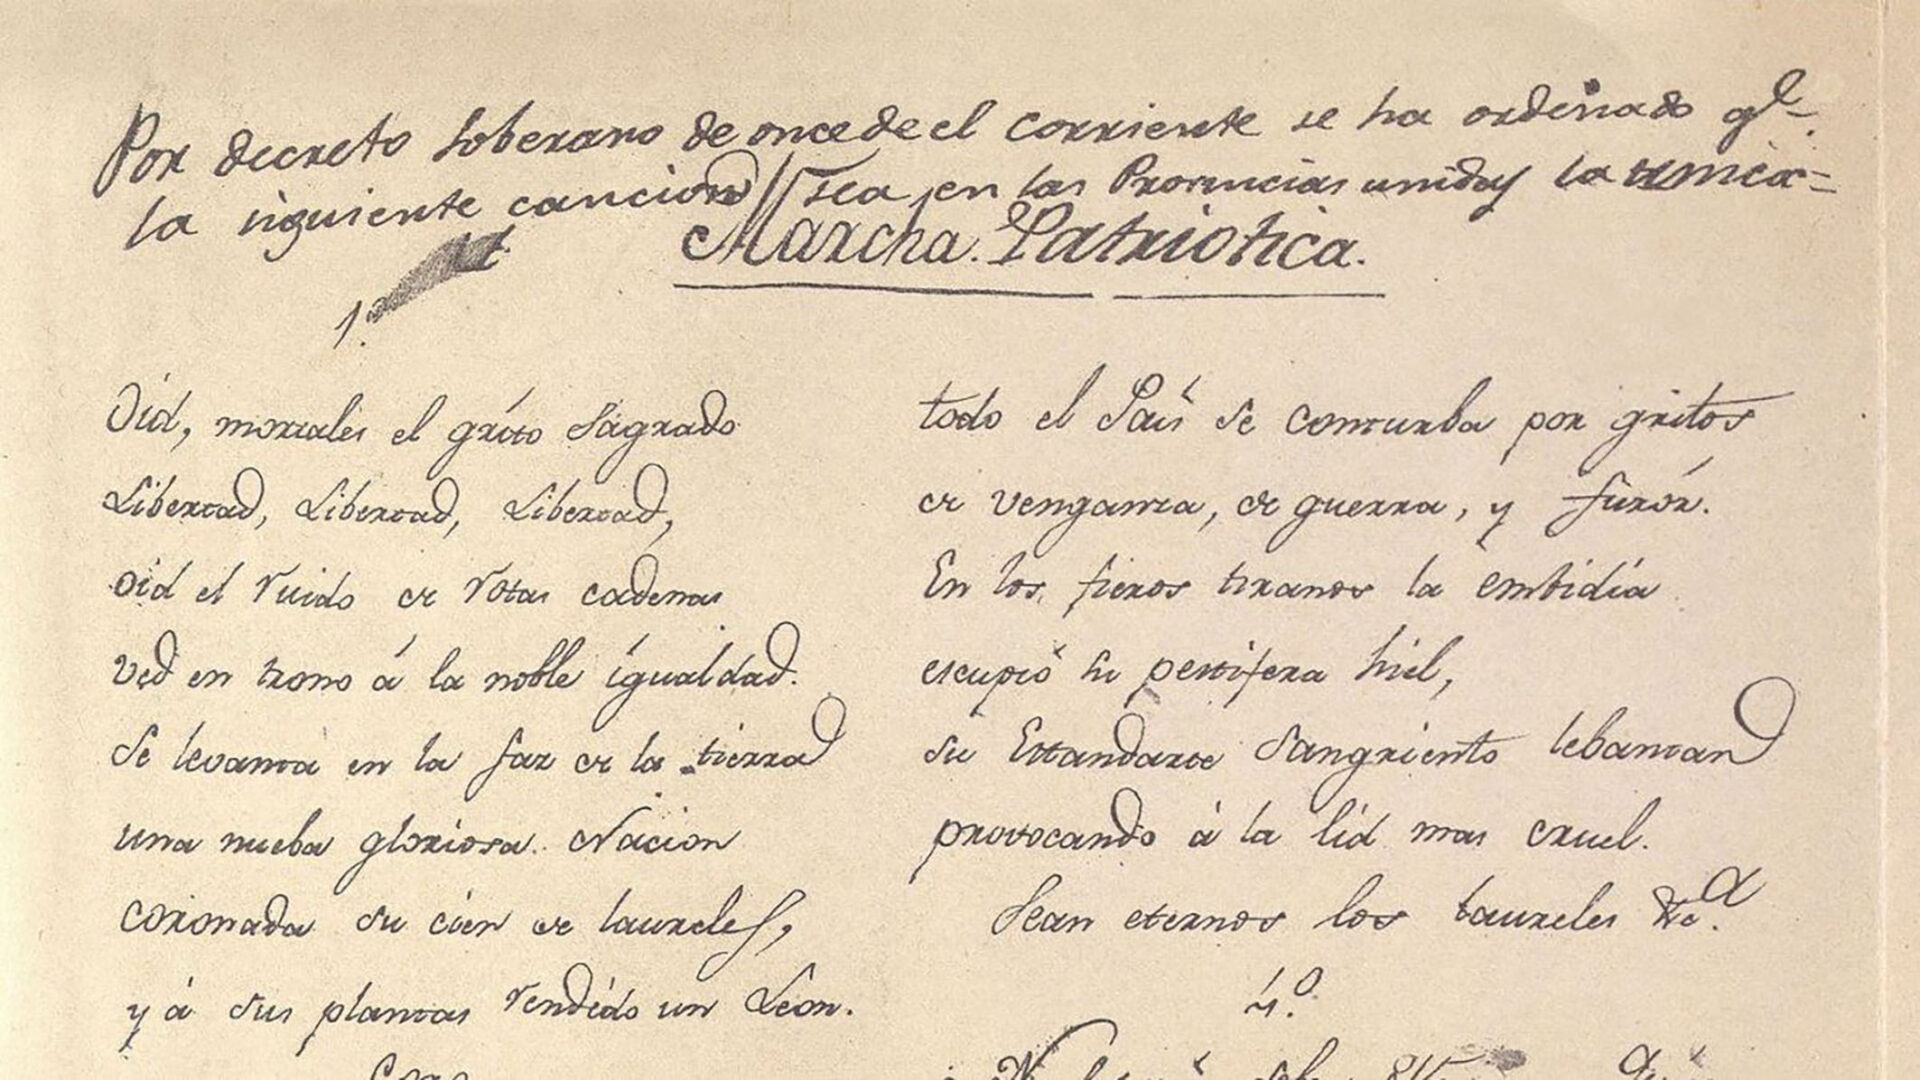 Por decreto soberano de once de el corriente se ha ordenado qe.
la siguiente cancion sea en las Provincias unidas la unica=
Marcha. Patriotica.
1.º
Oíd, mortales el gríto Sagrado
Libertad, Libertad, Libertad,
oíd el ruido de rotas cadenas
ved en trono á la noble ígualdad.
Se levanta en la faz de la tierra
una nueba gloriosa Nacion
coronada su cien de laureles,
y á sus plantas rendído un León.
Coro
todo el País se conturba por gritos
de venganza, de guerra, y furór.
En los fieros tiranos la embidía
escupió su pestifera hiel,
su Estandarte Sangriento lebantan
provocando á la líd mas cruel.
Sean eternos los Laureles &c.a
4.º